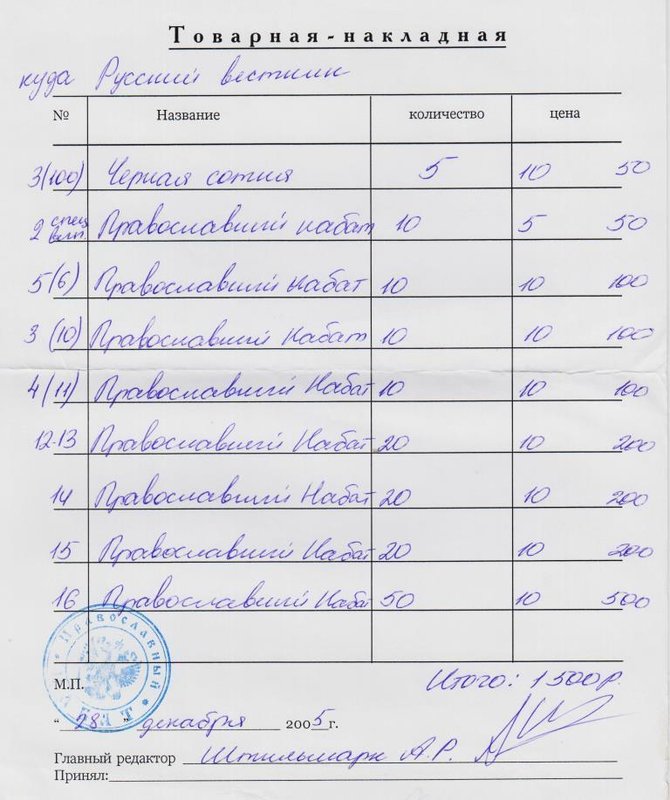 Товарная-накладная
куда Русский вестник
№ Название количество цена
3(100) Черная сотня 5 10 50
2 спец вып. Православный набат 10 5 50
5(6) Православный Набат 10 10 100
3 (10) Православный Набат 10 10 100
4(11) Православный Набат 10 10 100
12-13 Православный Набат 20 10 200
14 Православный Набат 20 10 200
15 Православный Набат 20 10 200
16 Православный Набат 50 10 500
Православный НАБАТ
М.П. Итого: 1500р.
"28" декабря 2005г.
Главный редактор Штильмарк А.Р.
Принял: